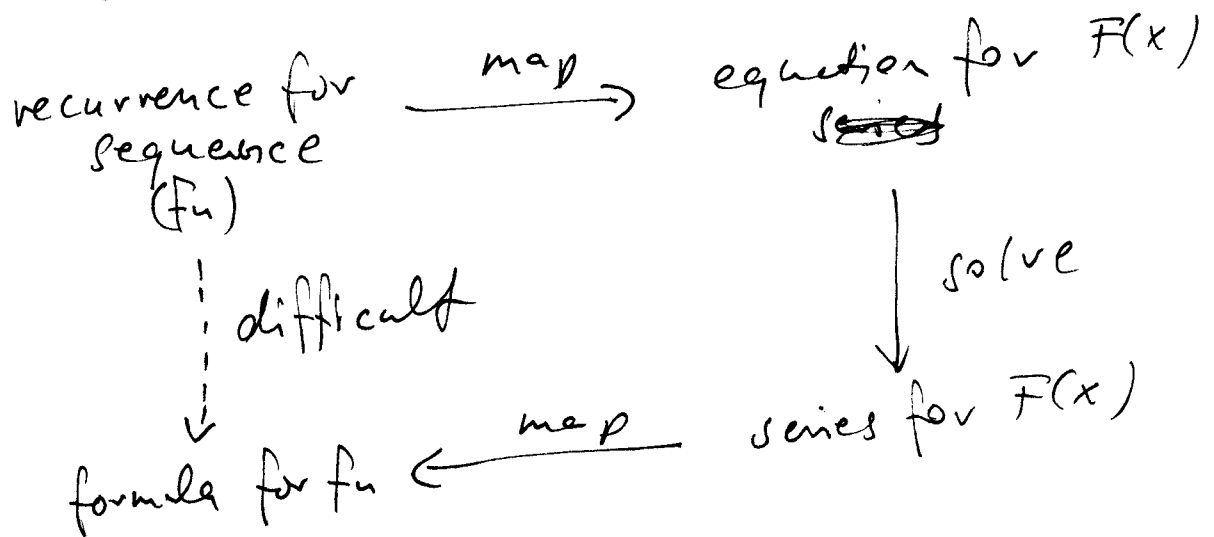 recurrence for
sequence
(fn)
map
equation for F(x)
difficult
solve
formula for fn
map
series for F(x)